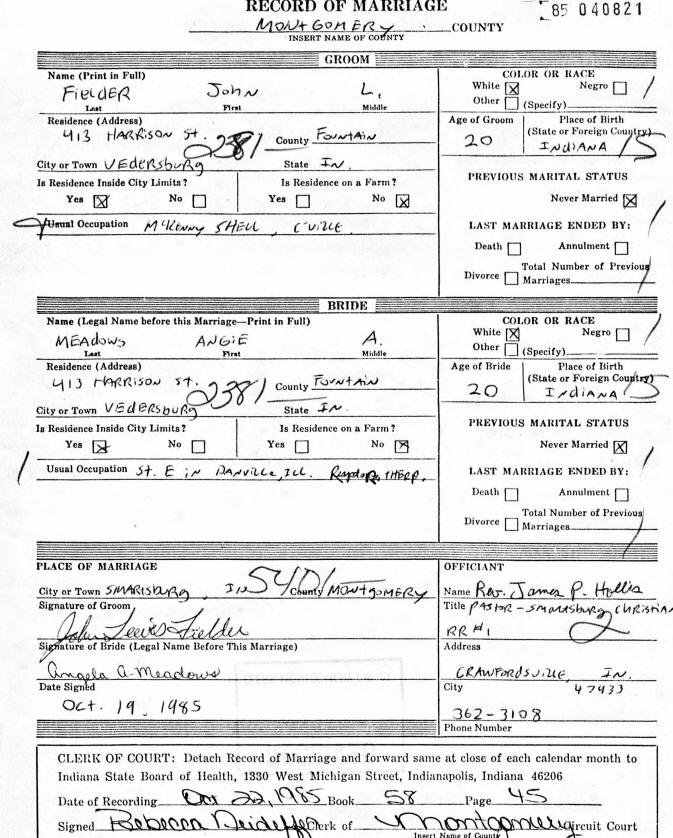 RECORD OF MARRIAGE
85 040821
MONTGOMERY COUNTY
INSERT NAME OF COUNTY
GROOM
Name (Print in Full)
FIELDER JOHN L.
Last First Middle
COLOR OR RACE
White Negro
Other (Specify)
Residence (Address)
413 HARRISON ST. County FOUNTAIN
2381
City or Town VEDERSBURG State IN.
Age of Groom
20
Place of Birth
(State or Foreign Country)
INDIANA 15
Is Residence Inside City Limits?
Yes No
Is Residence on a Farm?
Yes No
PREVIOUS MARITAL STATUS
Never Married
Usual Occupation McKenny SHELL, C'VILLE
LAST MARRIAGE ENDED BY:
Death Annulment
Divorce Total Number of Previous
Marriages
BRIDE
Name (Legal Name before this Marriage—Print in Full)
MEADOWS ANGIE A.
Last First Middle
COLOR OR RACE
White Negro
Other (Specify)
Residence (Address)
413 HARRISON ST. County FOUNTAIN
2381
City or Town VEDERSBURG State IN.
Age of Bride
20
Place of Birth
(State or Foreign Country)
INDIANA 15
Is Residence Inside City Limits?
Yes No
Is Residence on a Farm?
Yes No
PREVIOUS MARITAL STATUS
Never Married
Usual Occupation ST. E IN DANVILLE, ILL. THERP.
LAST MARRIAGE ENDED BY:
Death Annulment
Divorce Total Number of Previous
Marriages
PLACE OF MARRIAGE
City or Town SMARTSBURG, IN County MONTGOMERY
5401
Signature of Groom
John Lewis Fielder
Signature of Bride (Legal Name Before This Marriage)
Angela A. Meadows
Date Signed
Oct. 19, 1985
OFFICIANT
Name Rev. James P. Hollis
Title PASTOR - SMARTSBURG CHRISTIAN
RR #1 2
Address
CRAWFORDSVILLE, IN.
City 47933
362-3108
Phone Number
CLERK OF COURT: Detach Record of Marriage and forward same at close of each calendar month to
Indiana State Board of Health, 1330 West Michigan Street, Indianapolis, Indiana 46206
Date of Recording Oct 22, 1985 Book 58 Page 45
Signed Rebecca Clerk of Montgomery Circuit Court
Insert Name of County